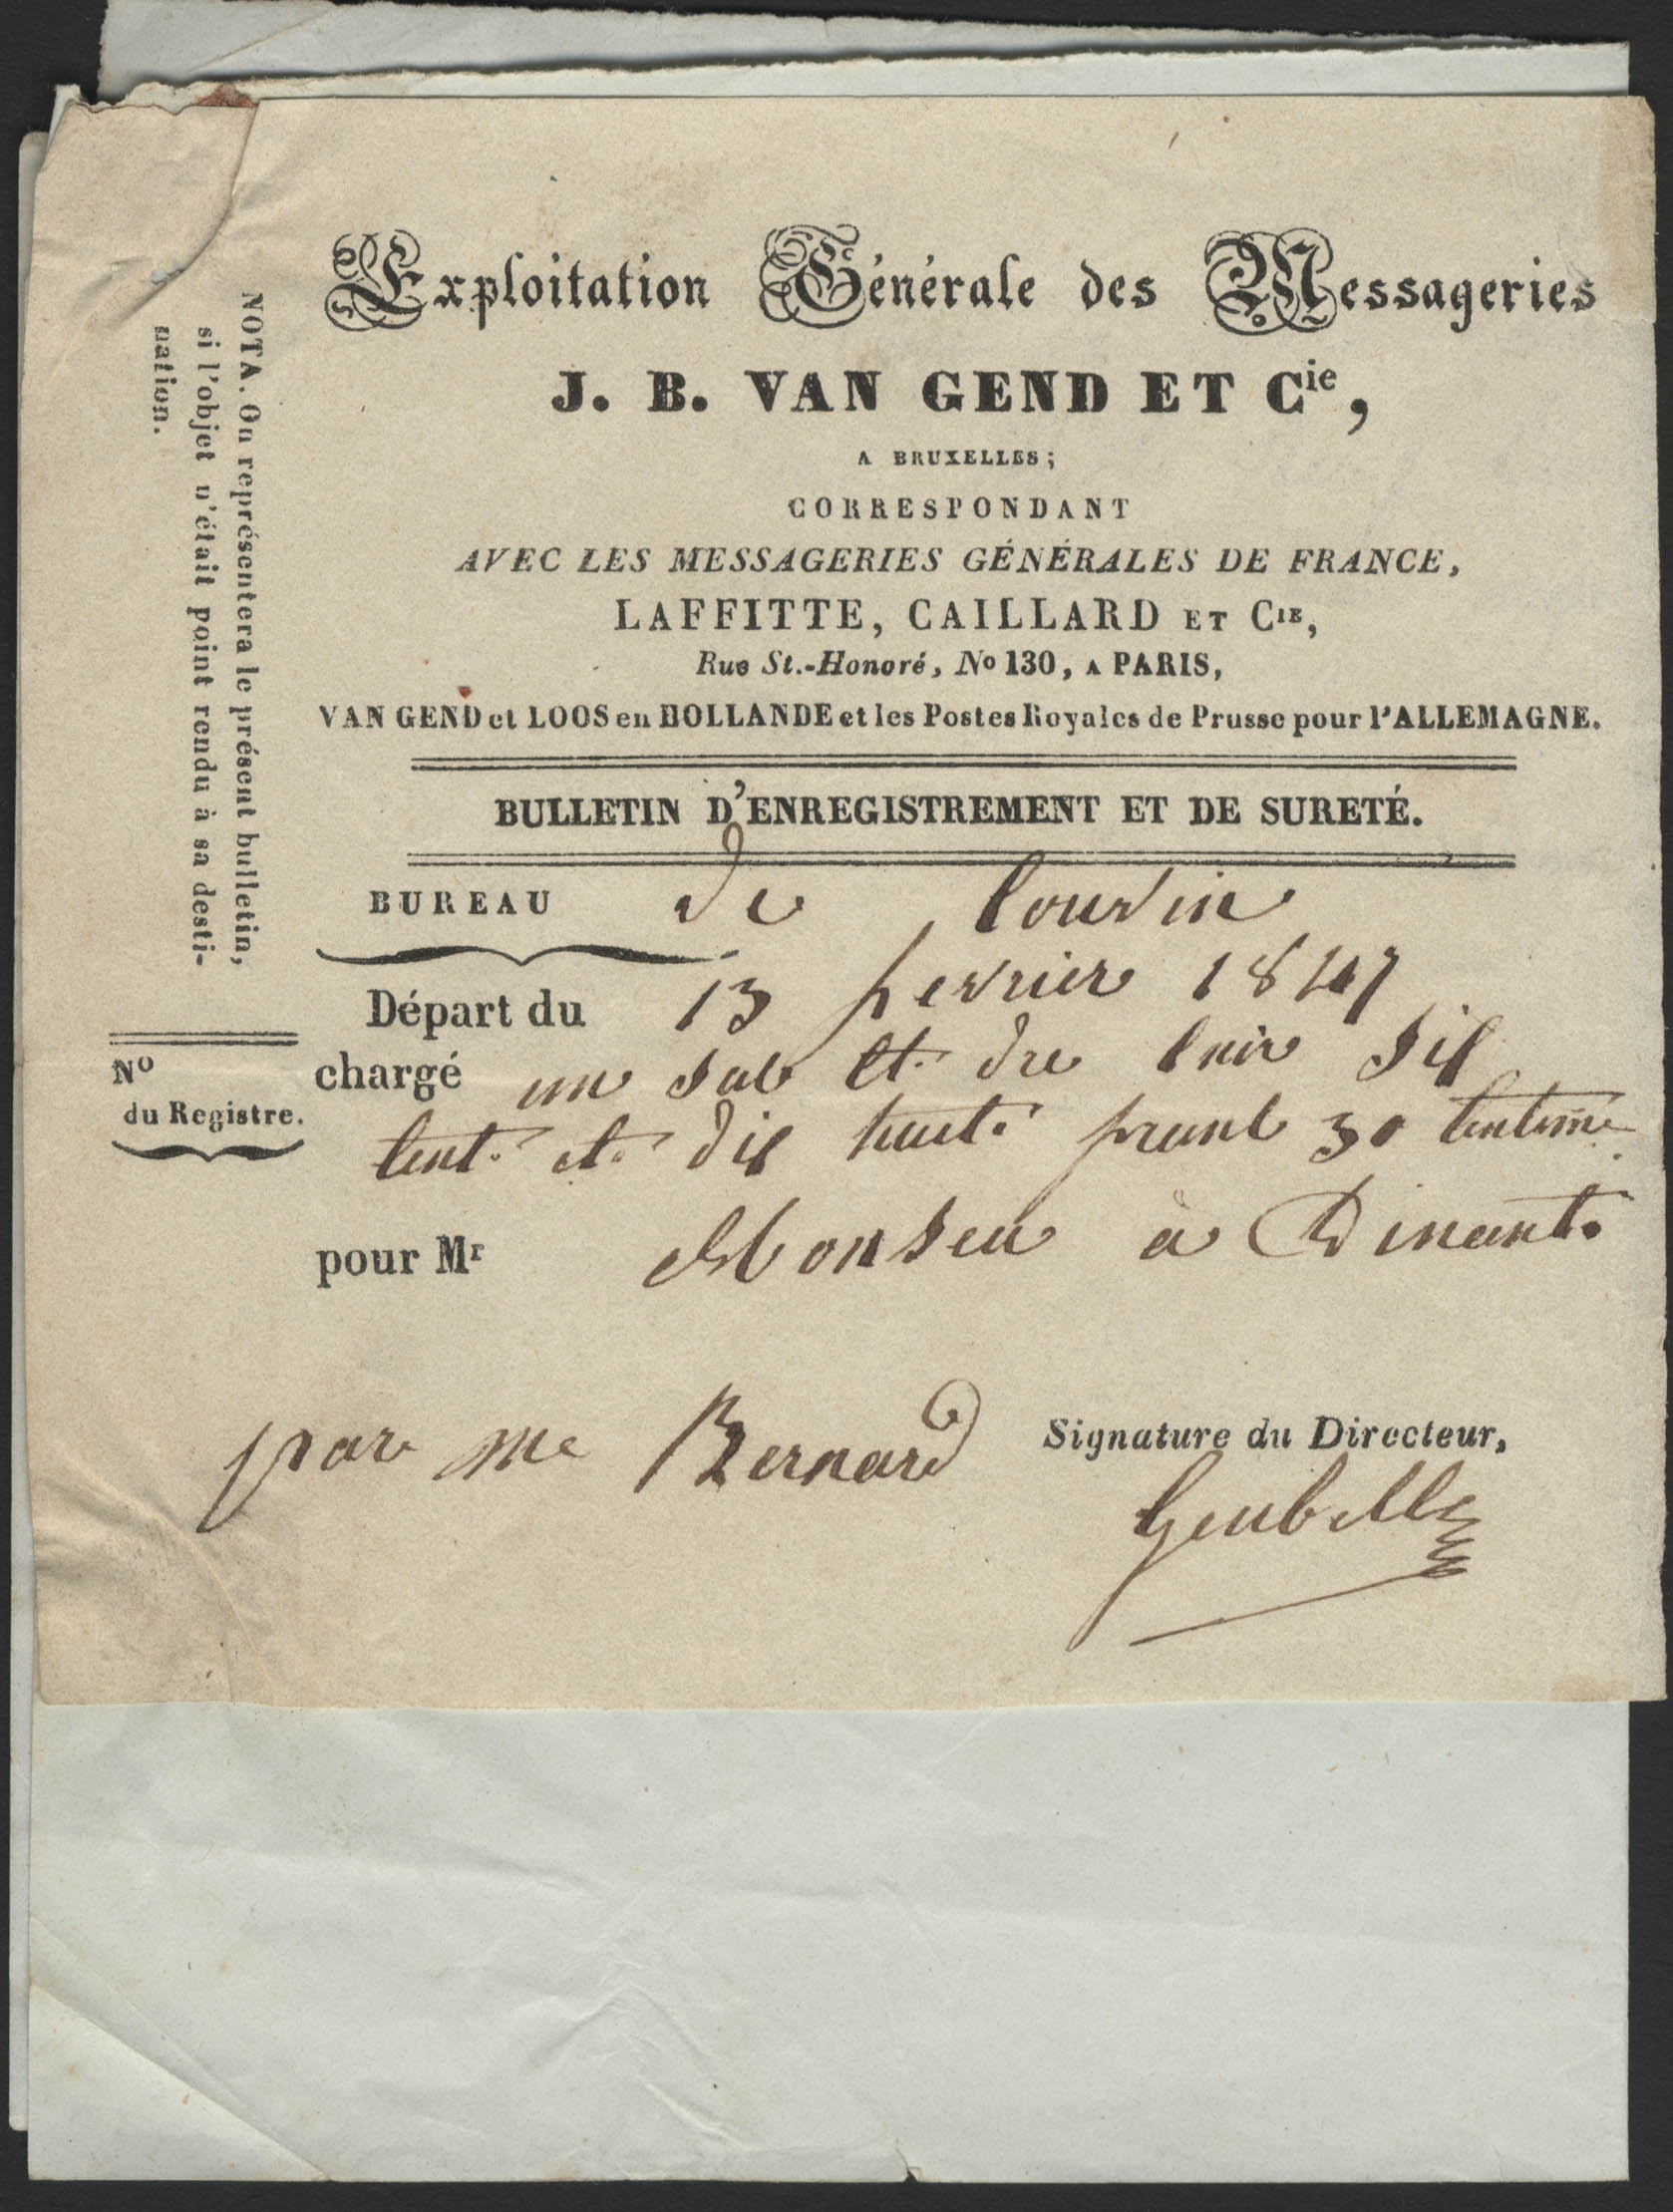 Exploitation Générale des Messageries
J. B. VAN GEND ET Cie,
A BRUXELLES;
CORRESPONDANT
AVEC LES MESSAGERIES GÉNÉRALES DE FRANCE,
LAFFITTE, CAILLARD ET CIE,
Rue St.-Honoré, No 130, A PARIS,
VAN GEND et LOOS en HOLLANDE et les Postes Royales de Prusse pour l'ALLEMAGNE.
BULLETIN D'ENREGISTREMENT ET DE SURETÉ.
BUREAU de Couvin
Départ du 13 fevrier 1847
chargé un sac et. de cuir sil
cent. et. dix huit. franc 30 centime
pour Mr Monseu à Dinant.
par me Bernard
Signature du Directeur,
Geubelle
NOTA. On représentera le présent bulletin,
si l'objet n'était point rendu à sa desti-
nation.
No
du Registre.